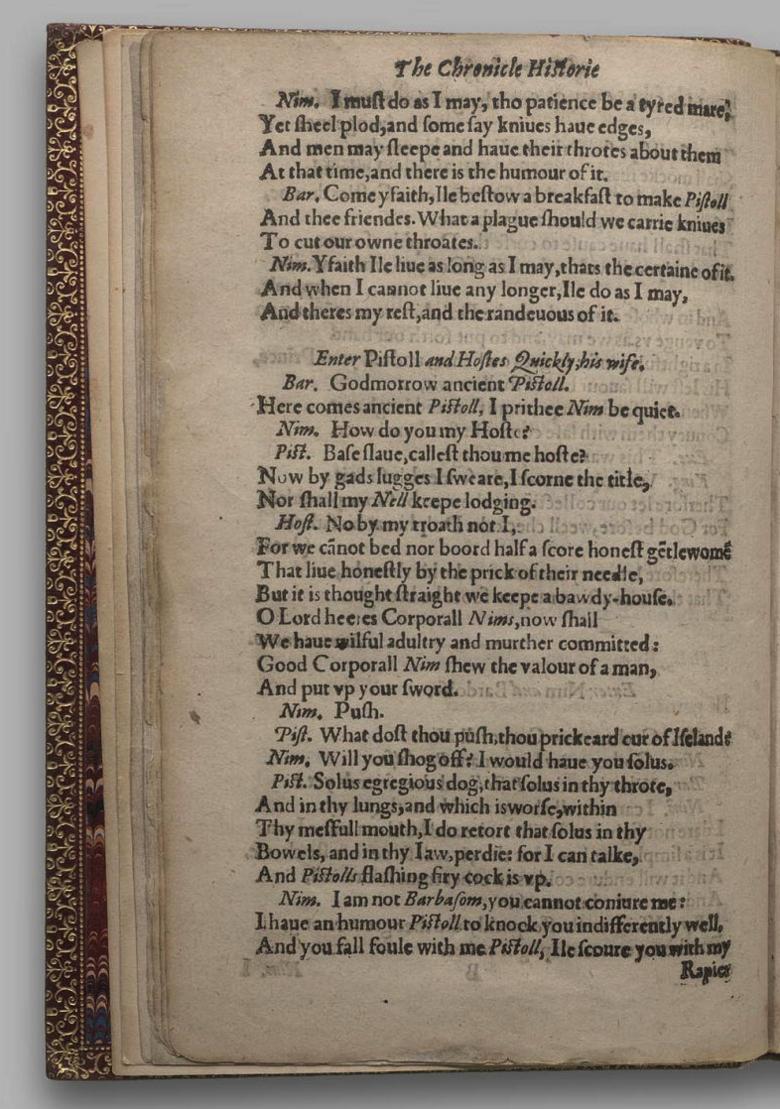 The Chronicle Hiſtorie
Nim. I muſt do as I may, tho patience be a tyred mare,
Yet ſheel plod,and ſome ſay kniues haue edges,
And men may ſleepe and haue their throtes about them
At that time,and there is the humour of it.
Bar. Come yfaith, Ile beſtow a breakfaſt to make Piſtoll
And thee friendes. What a plague ſhould we carrie kniues
To cut our owne throates.
Nim. Yfaith Ile liue as long as I may,thats the certaine of it.
And when I cannot liue any longer,Ile do as I may,
And theres my reſt,and the randeuous of it.
Enter Piſtoll and Hoſtes Quickly,his wife.
Bar. Godmorrow ancient Piſtoll.
Here comes ancient Piſtoll, I prithee Nim be quiet.
Nim. How do you my Hoſte?
Piſt. Baſe ſlaue,calleſt thou me hoſte?
Now by gads lugges I ſweare,I ſcorne the title,
Nor ſhall my Nell keepe lodging.
Hoſt. No by my troath not I,
For we cãnot bed nor boord half a ſcore honeſt gẽtlewomẽ
That liue honeſtly by the prick of their needle,
But it is thought ſtraight we keepe a bawdy-houſe.
O Lord heeres Corporall Nims,now ſhall
We haue wilful adultry and murther committed:
Good Corporall Nim ſhew the valour of a man,
And put vp your ſword.
Nim. Puſh.
Piſt. What doſt thou puſh,thou prickeard cur of Iſeland?
Nim. Will you ſhog off? I would haue you ſolus.
Piſt. Solus egregious dog,that ſolus in thy throte,
And in thy lungs,and which is worſe,within
Thy meſfull mouth,I do retort that ſolus in thy
Bowels, and in thy Iaw,perdie: for I can talke,
And Piſtolls flaſhing firy cock is vp.
Nim. I am not Barbaſom,you cannot coniure me:
I haue an humour Piſtoll to knock you indifferently well,
And you fall foule with me Piſtoll, Ile ſcoure you with my
Rapier